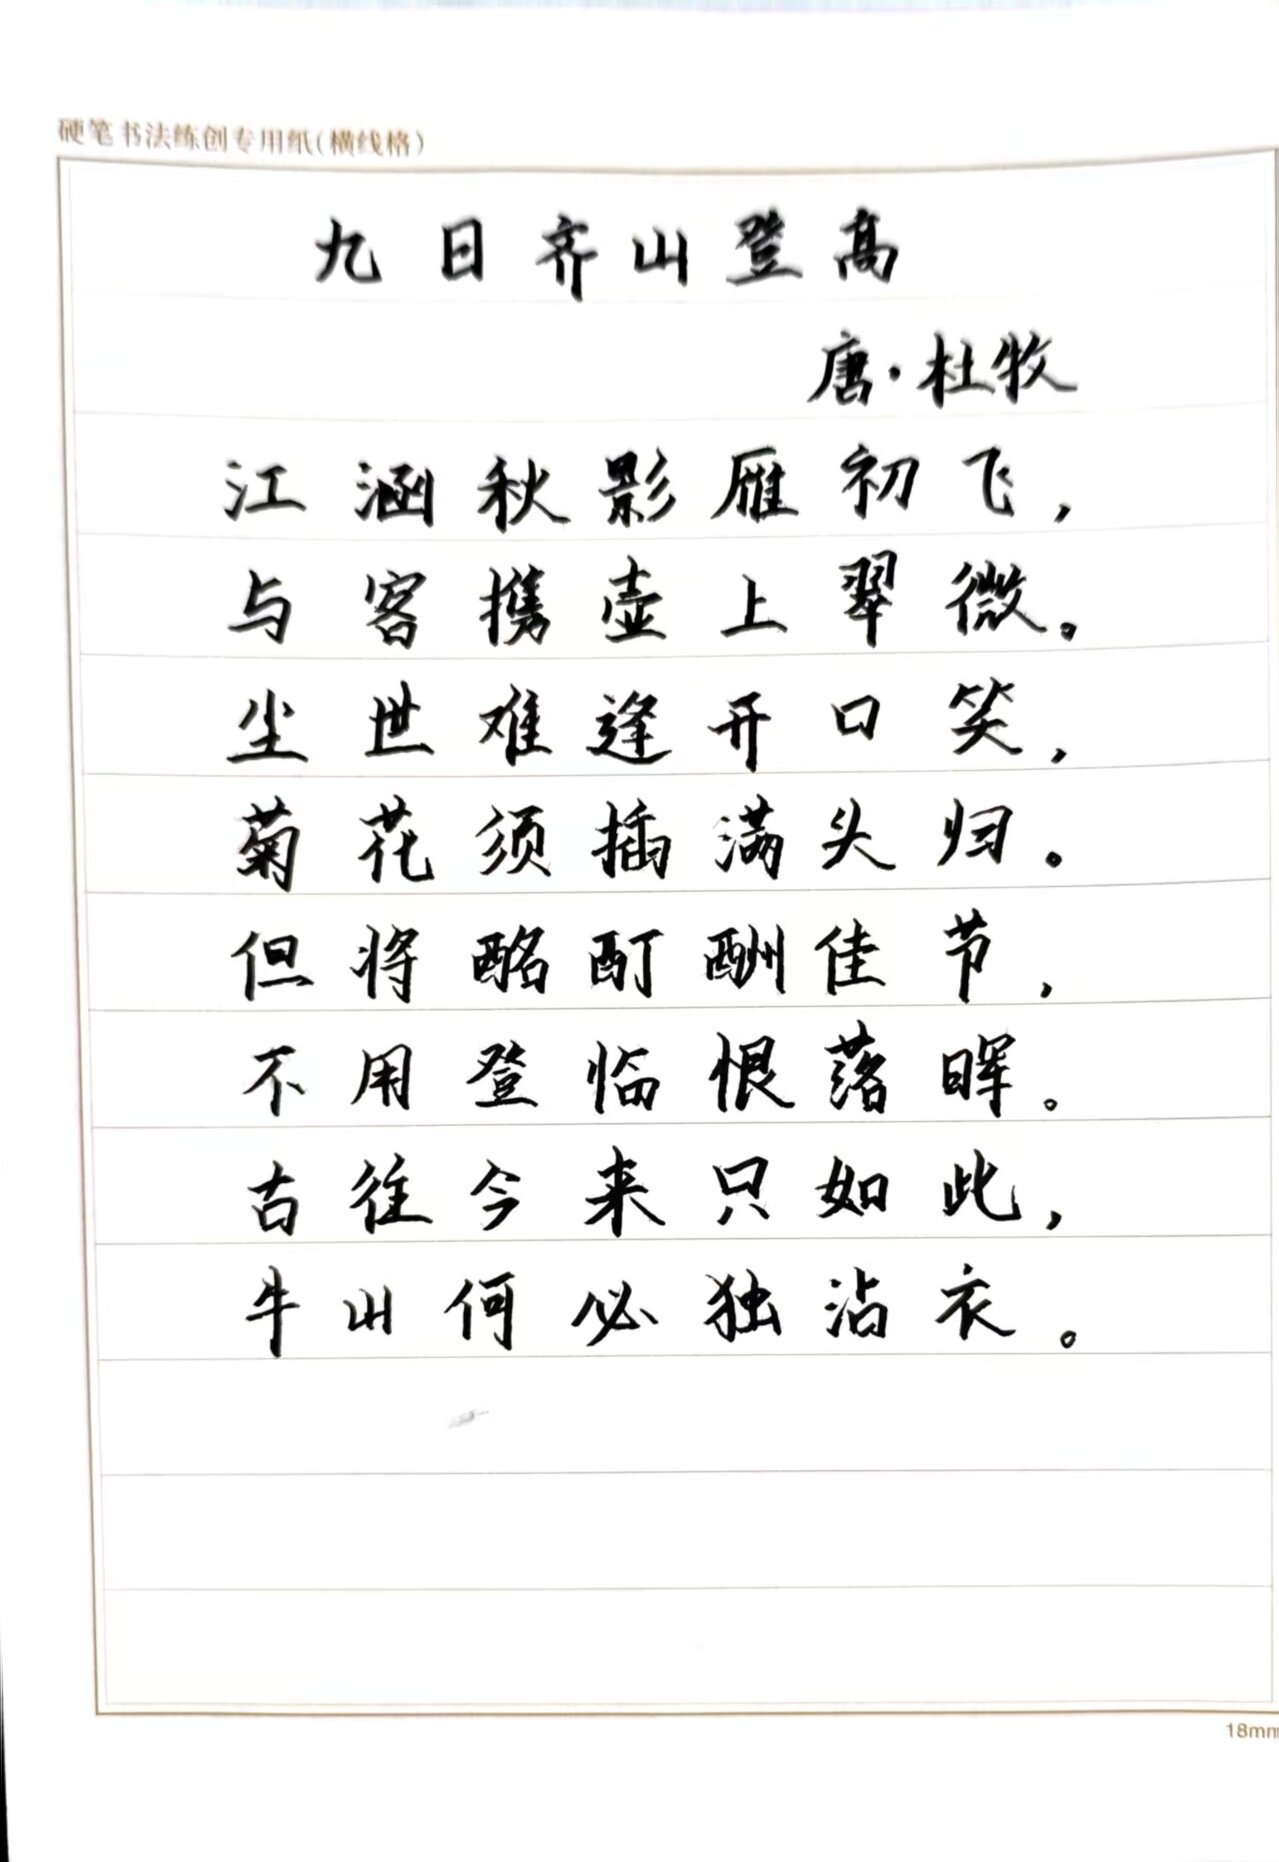 硬笔书法练创专用纸(横线格)
九日齐山登高
唐·杜牧
江涵秋影雁初飞，
与客携壶上翠微。
尘世难逢开口笑，
菊花须插满头归。
但将酩酊酬佳节，
不用登临恨落晖。
古往今来只如此，
牛山何必独沾衣。
18mm